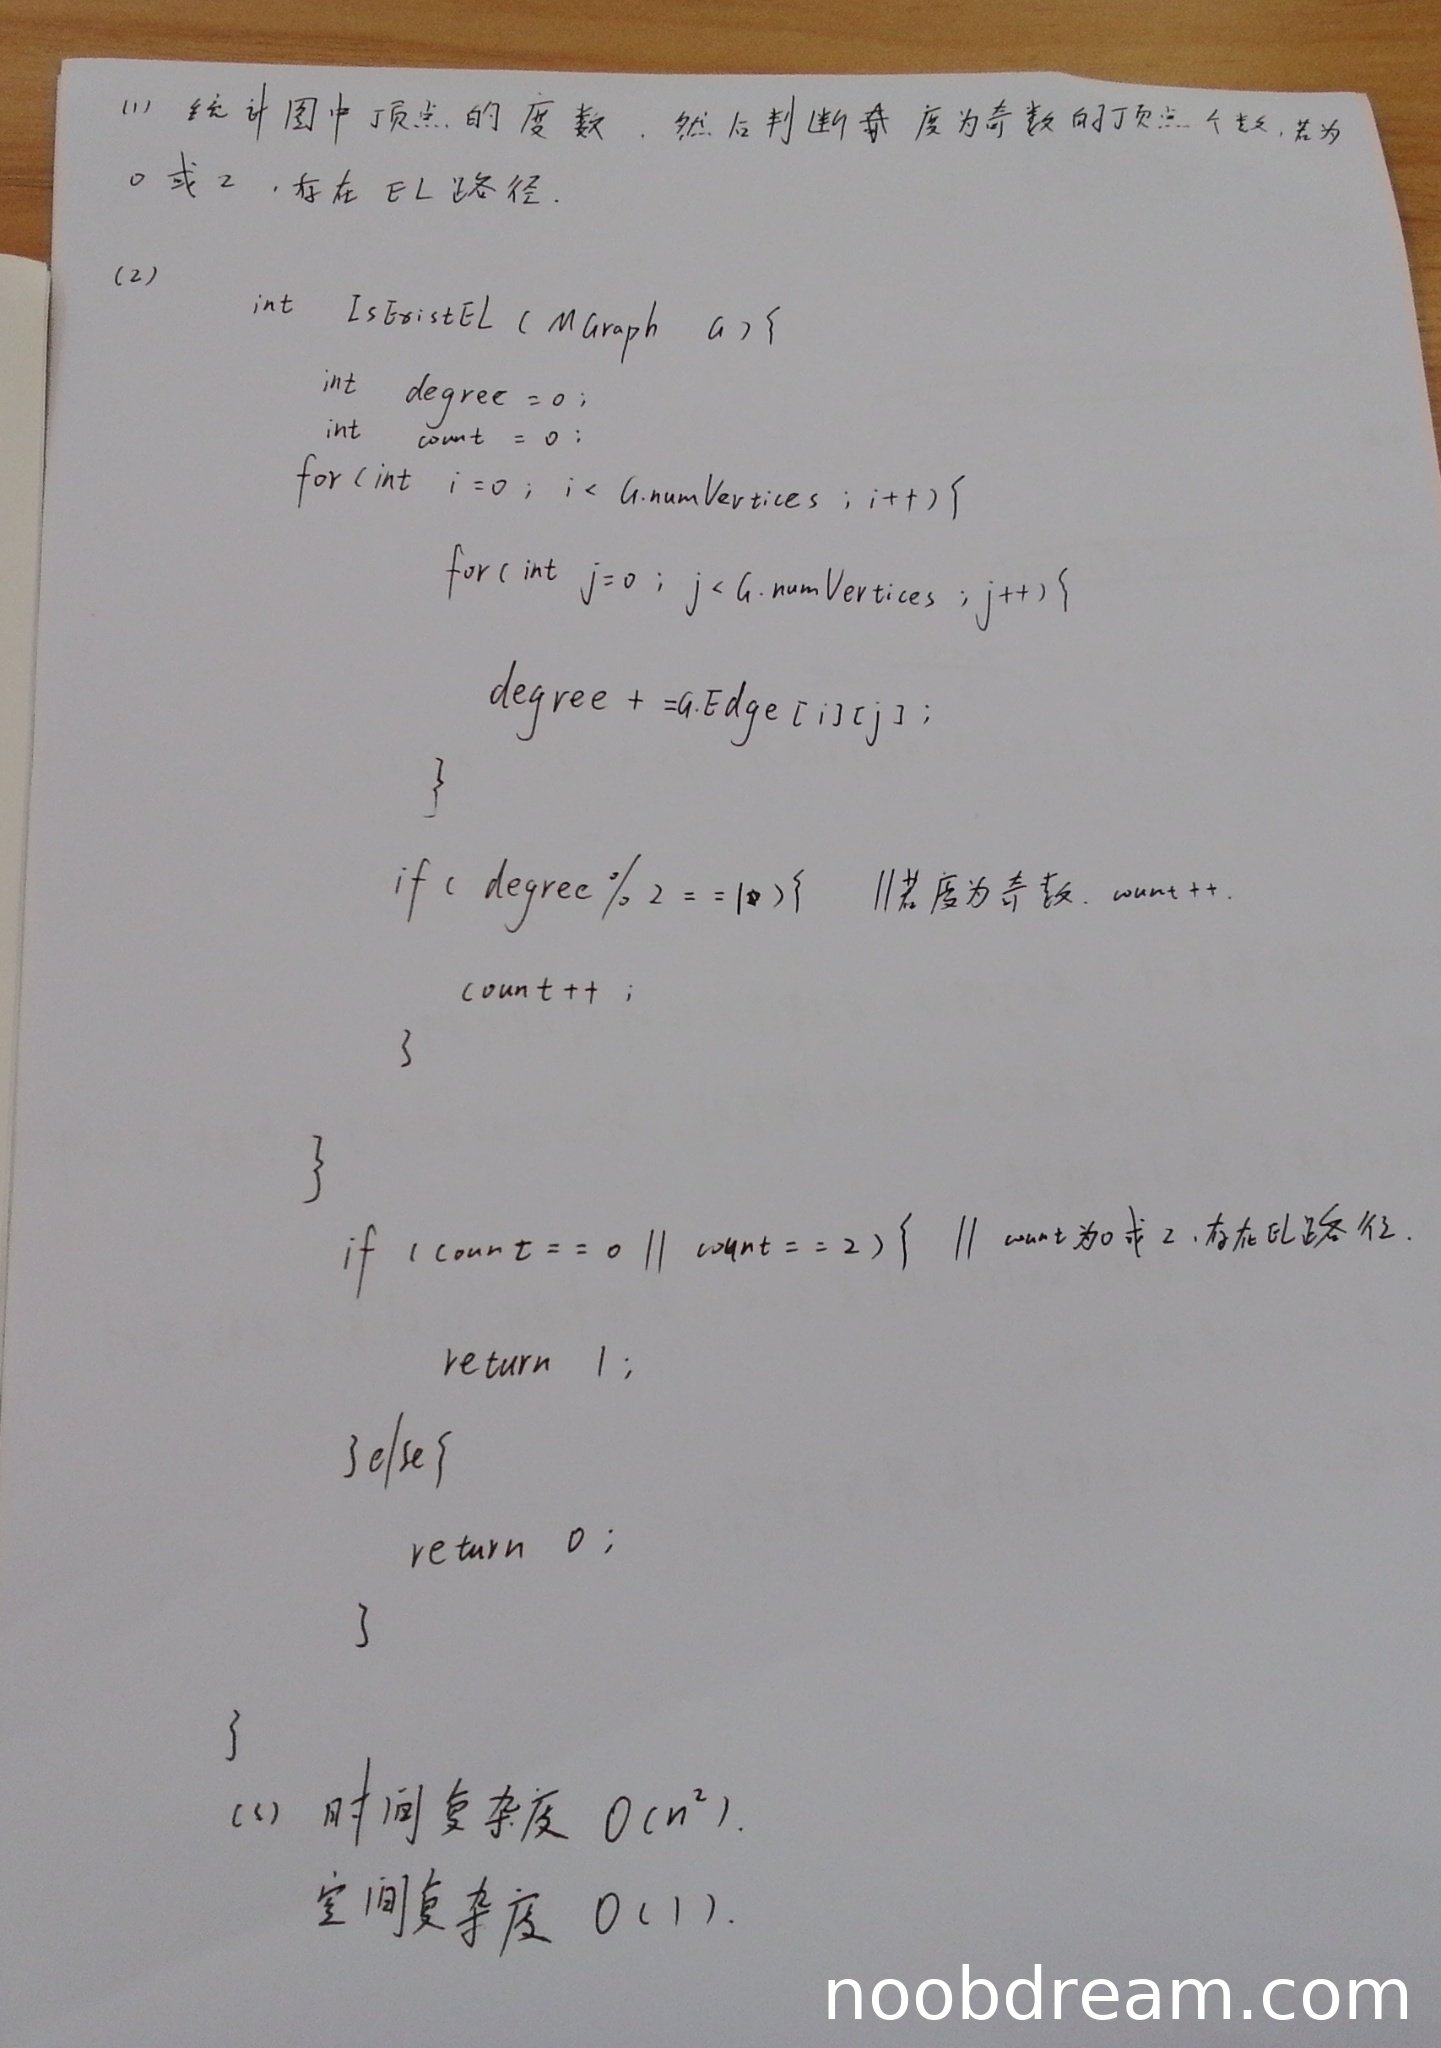 (1) 统计图中顶点的度数.然后判断 度为奇数的顶点个数,若为
0或2,存在EL路径.
(2)
int IsExistEL (MGraph G){
int degree = 0;
int count = 0;
for(int i=0; i< G.numVertices; i++){
for(int j=0; j<G.numVertices; j++){
degree +=G.Edge[i][j];
}
if( degree%2==1){ //若度为奇数.count++.
count++;
}
}
if (count==0 || count==2){ // count为0或2,存在EL路径.
return 1;
}else{
return 0;
}
}
(3) 时间复杂度 O(n²).
空间复杂度 O(1).
noobdream.com